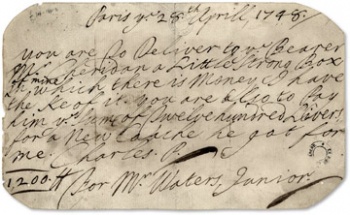 Paris ye 28th Aprill, 1748.
you are to Deliver to ye Bearer
Mr Sheridan a Little Strong Box
off mine
in which there is Money, I have
the Ke of it. you are also to Pay
him ye sume of Twelve hundred Livers
for a New Coache he got for
me. Charles. P.
1200. ₶
For Mr Waters, Junior.